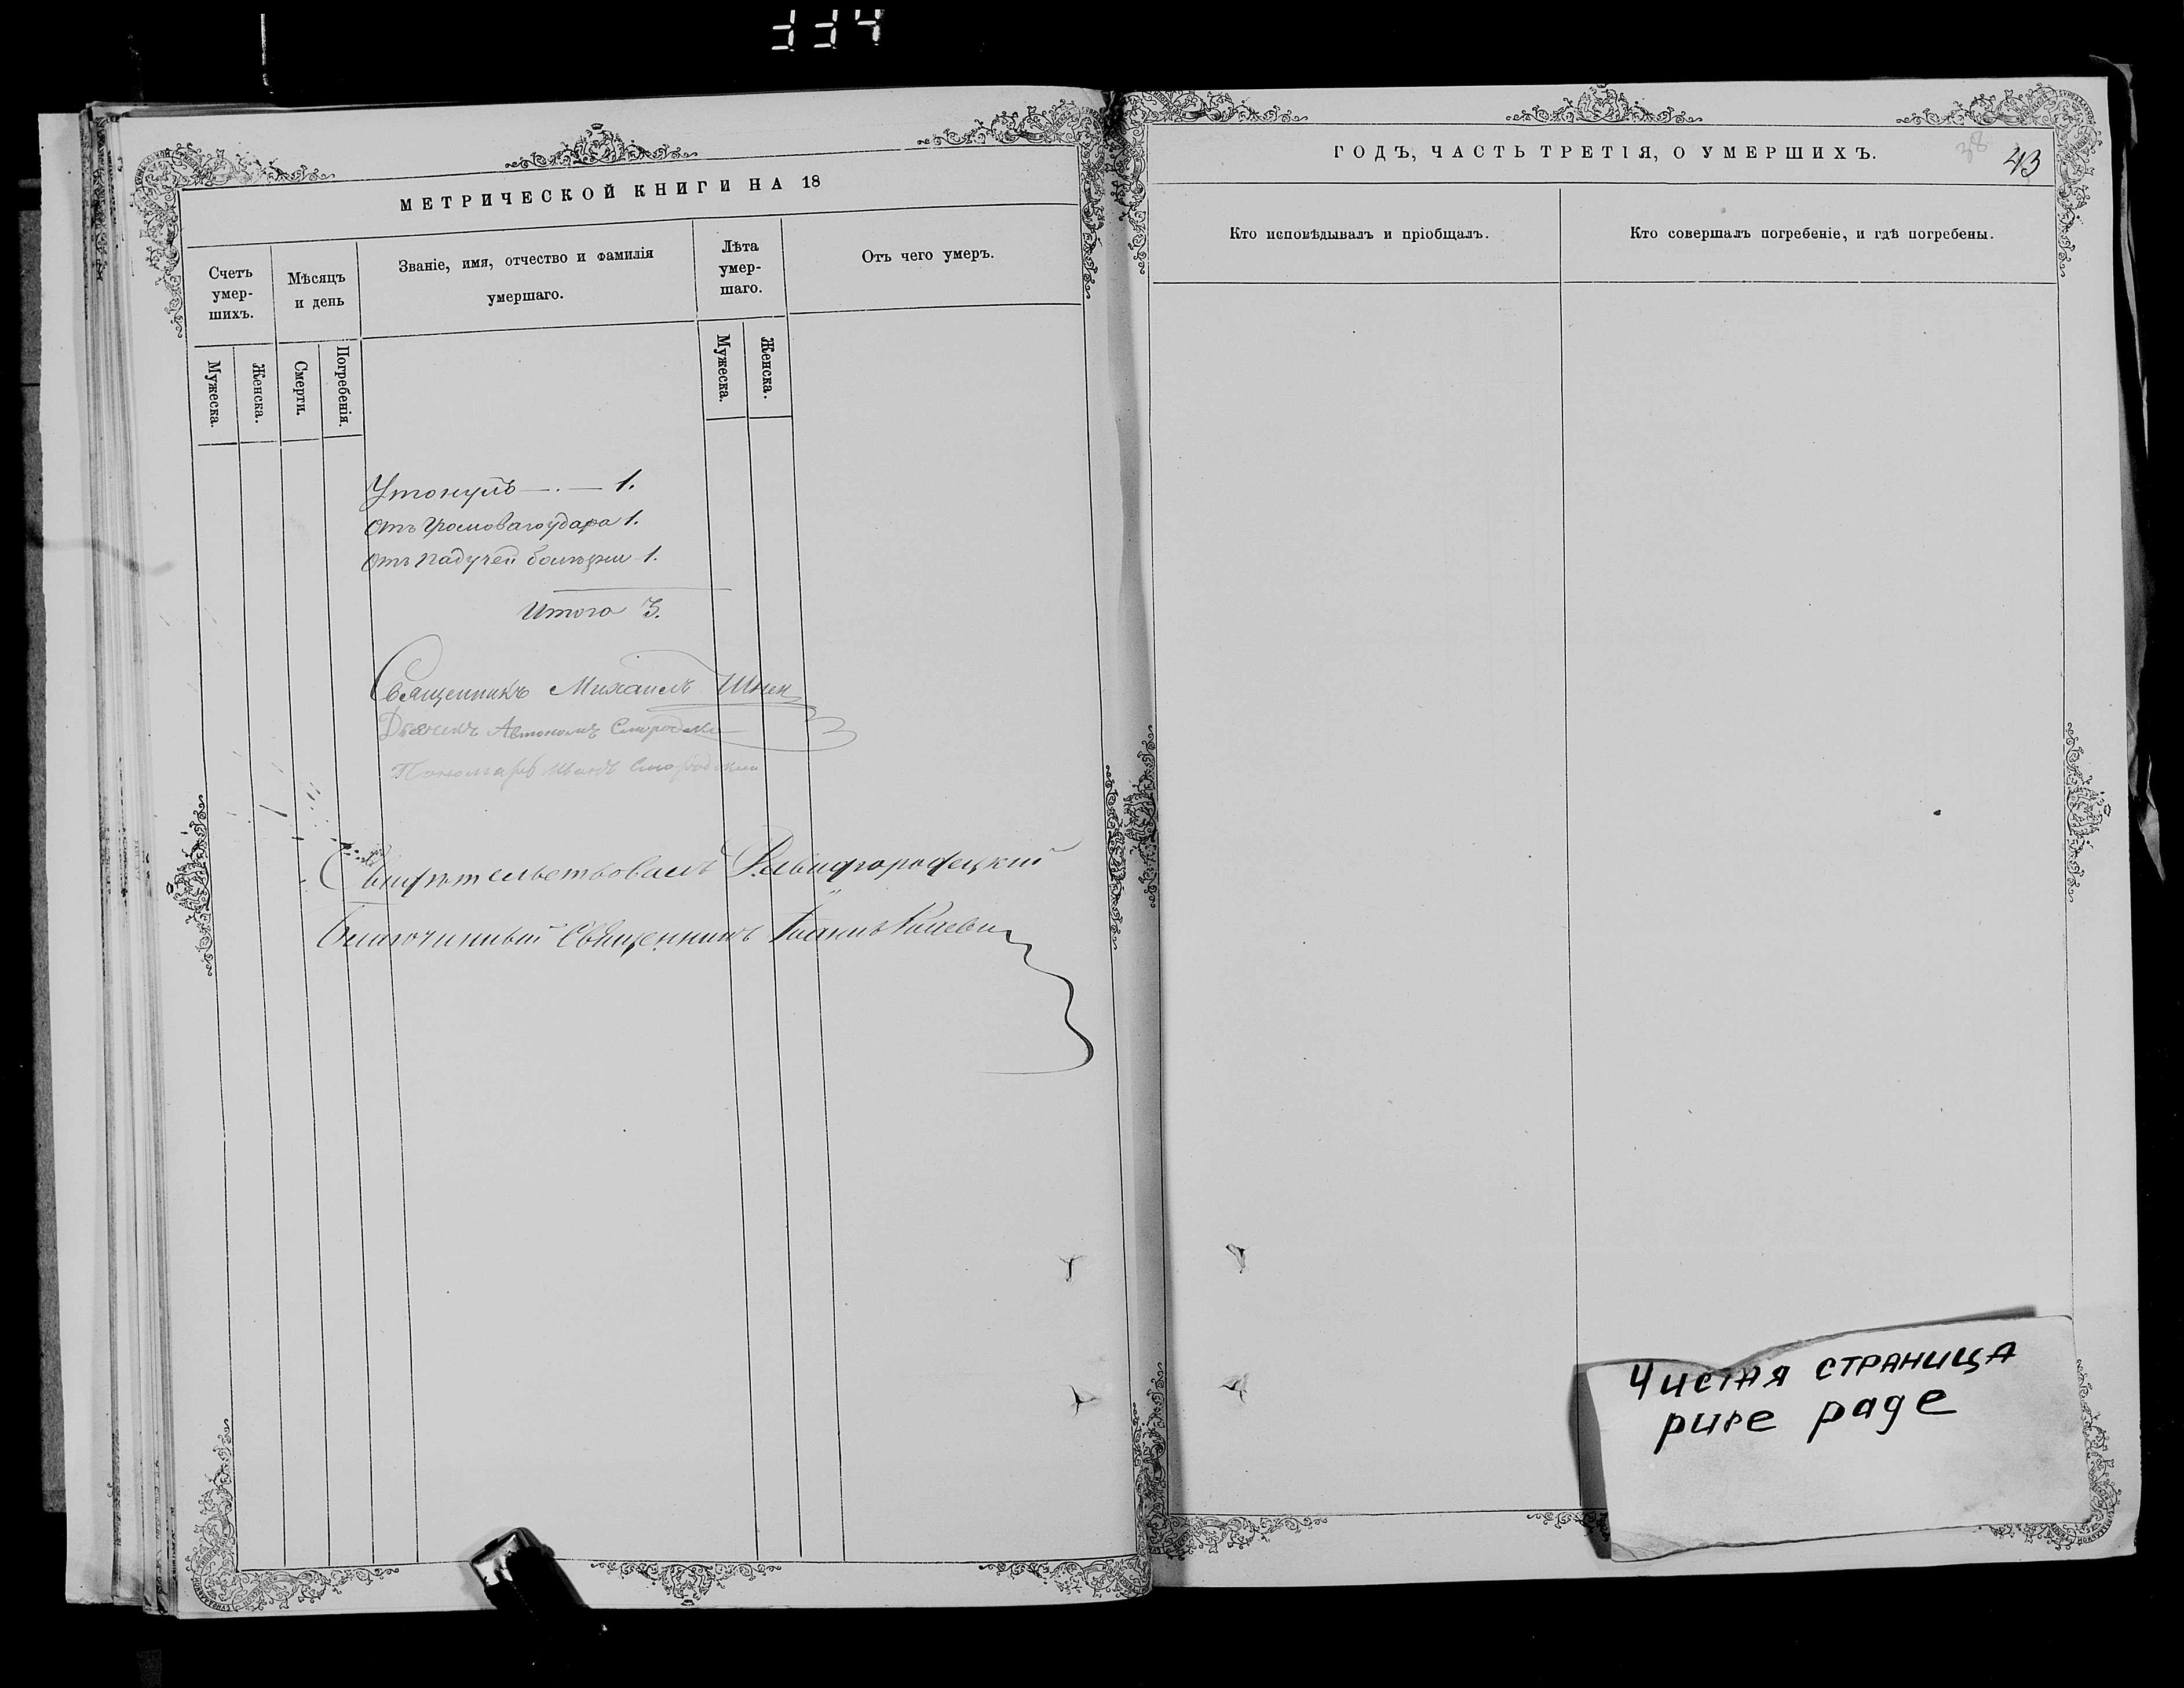 334
МЕТРИЧЕСКОЙ КНИГИ НА 18
Счетъ умер-шихъ.
Мѣсяцъ и день
Званіе, имя, отчество и фамилія
умершаго.
Лѣта умер-шаго.
Отъ чего умеръ.
Мужеска.
Женска.
Смерти.
Погребенія.
Мужеска.
Женска.
Утонулъ — . — 1.
Отъ громоваго удара 1.
Отъ падучей болѣзни 1.
Итого 3.
Священникъ Михаилъ
Дьячекъ Автономъ
Пономарь Иванъ
Свидѣтельствовалъ
Благочинный Священникъ Іоаннъ
ГОДЪ, ЧАСТЬ ТРЕТІЯ, О УМЕРШИХЪ.
38
43
Кто исповѣдывалъ и пріобщалъ.
Кто совершалъ погребеніе, и гдѣ погребены.
Чистая страница
pure page